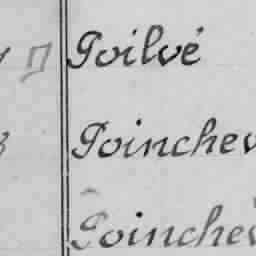 Poilvé
Poinchev
Poinchev